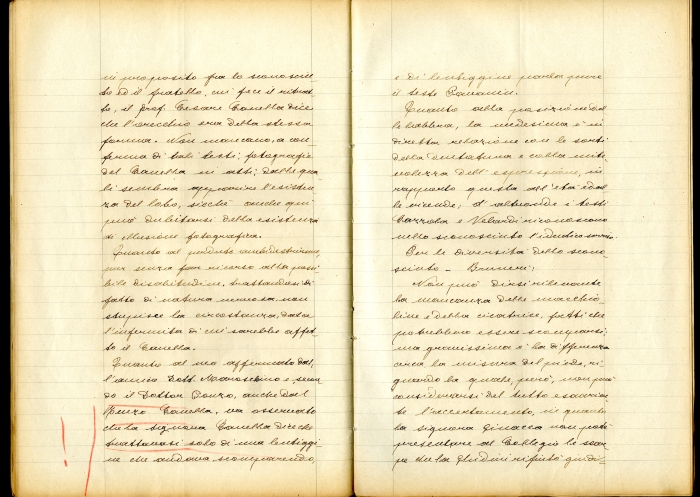 in proposito fra lo sconosciu-
to ed il fratello, cui fece il ritrat-
to, il prof. Cesare Canella dice
che l'orecchio era della stessa
forma. Non mancano, a con-
ferma di tali testi, fotografie
del Canella in atti, dalle qua-
li sembra apparire l'esisten-
za del lobo, sicchè anche qui
può dubitarsi della esistenza
di illusione fotografica.
Quanto al preteso ambidestrismo,
pur senza far ricorso alla possi-
bile disabitudine, trattandosi di
fatto di natura nervosa non
stupisce la circostanza, data
l'infermità di cui sarebbe affet-
to il Canella.
Quanto al neo affermato dal-
l'amico Dott. e secon-
do il Dottor Ponzo, anche dal
Renzo Canella, va osservato
che la Signora Canella dice che
trattavasi solo di una lentiggi-
ne che andava scomparendo,
e di lentiggine parla pure
il teste
Quanto alla posizione del-
le labbra, la medesima è in
diretta relazione con le sorti
della dentatura e colla mute-
volezza dell'espressione, in
rapporto questa all'età ed al-
le vicende; d'altronde i testi
e riconoscono
nello sconosciuto l'identico sorriso.
Per le diversità dello scono-
sciuto - Bruneri:
Non può dirsi rilevante
la mancanza delle macchio-
line e della cicatrice, fatti che
potrebbero essere scomparsi;
ma gravissima è la differenza
circa la misura del piede, ri-
guardo la quale, però, non può
considerarsi del tutto esaurien-
te l'accertamento, in quanto
la signora non potè
presentare al Collegio le scar-
pe che la rifiutò